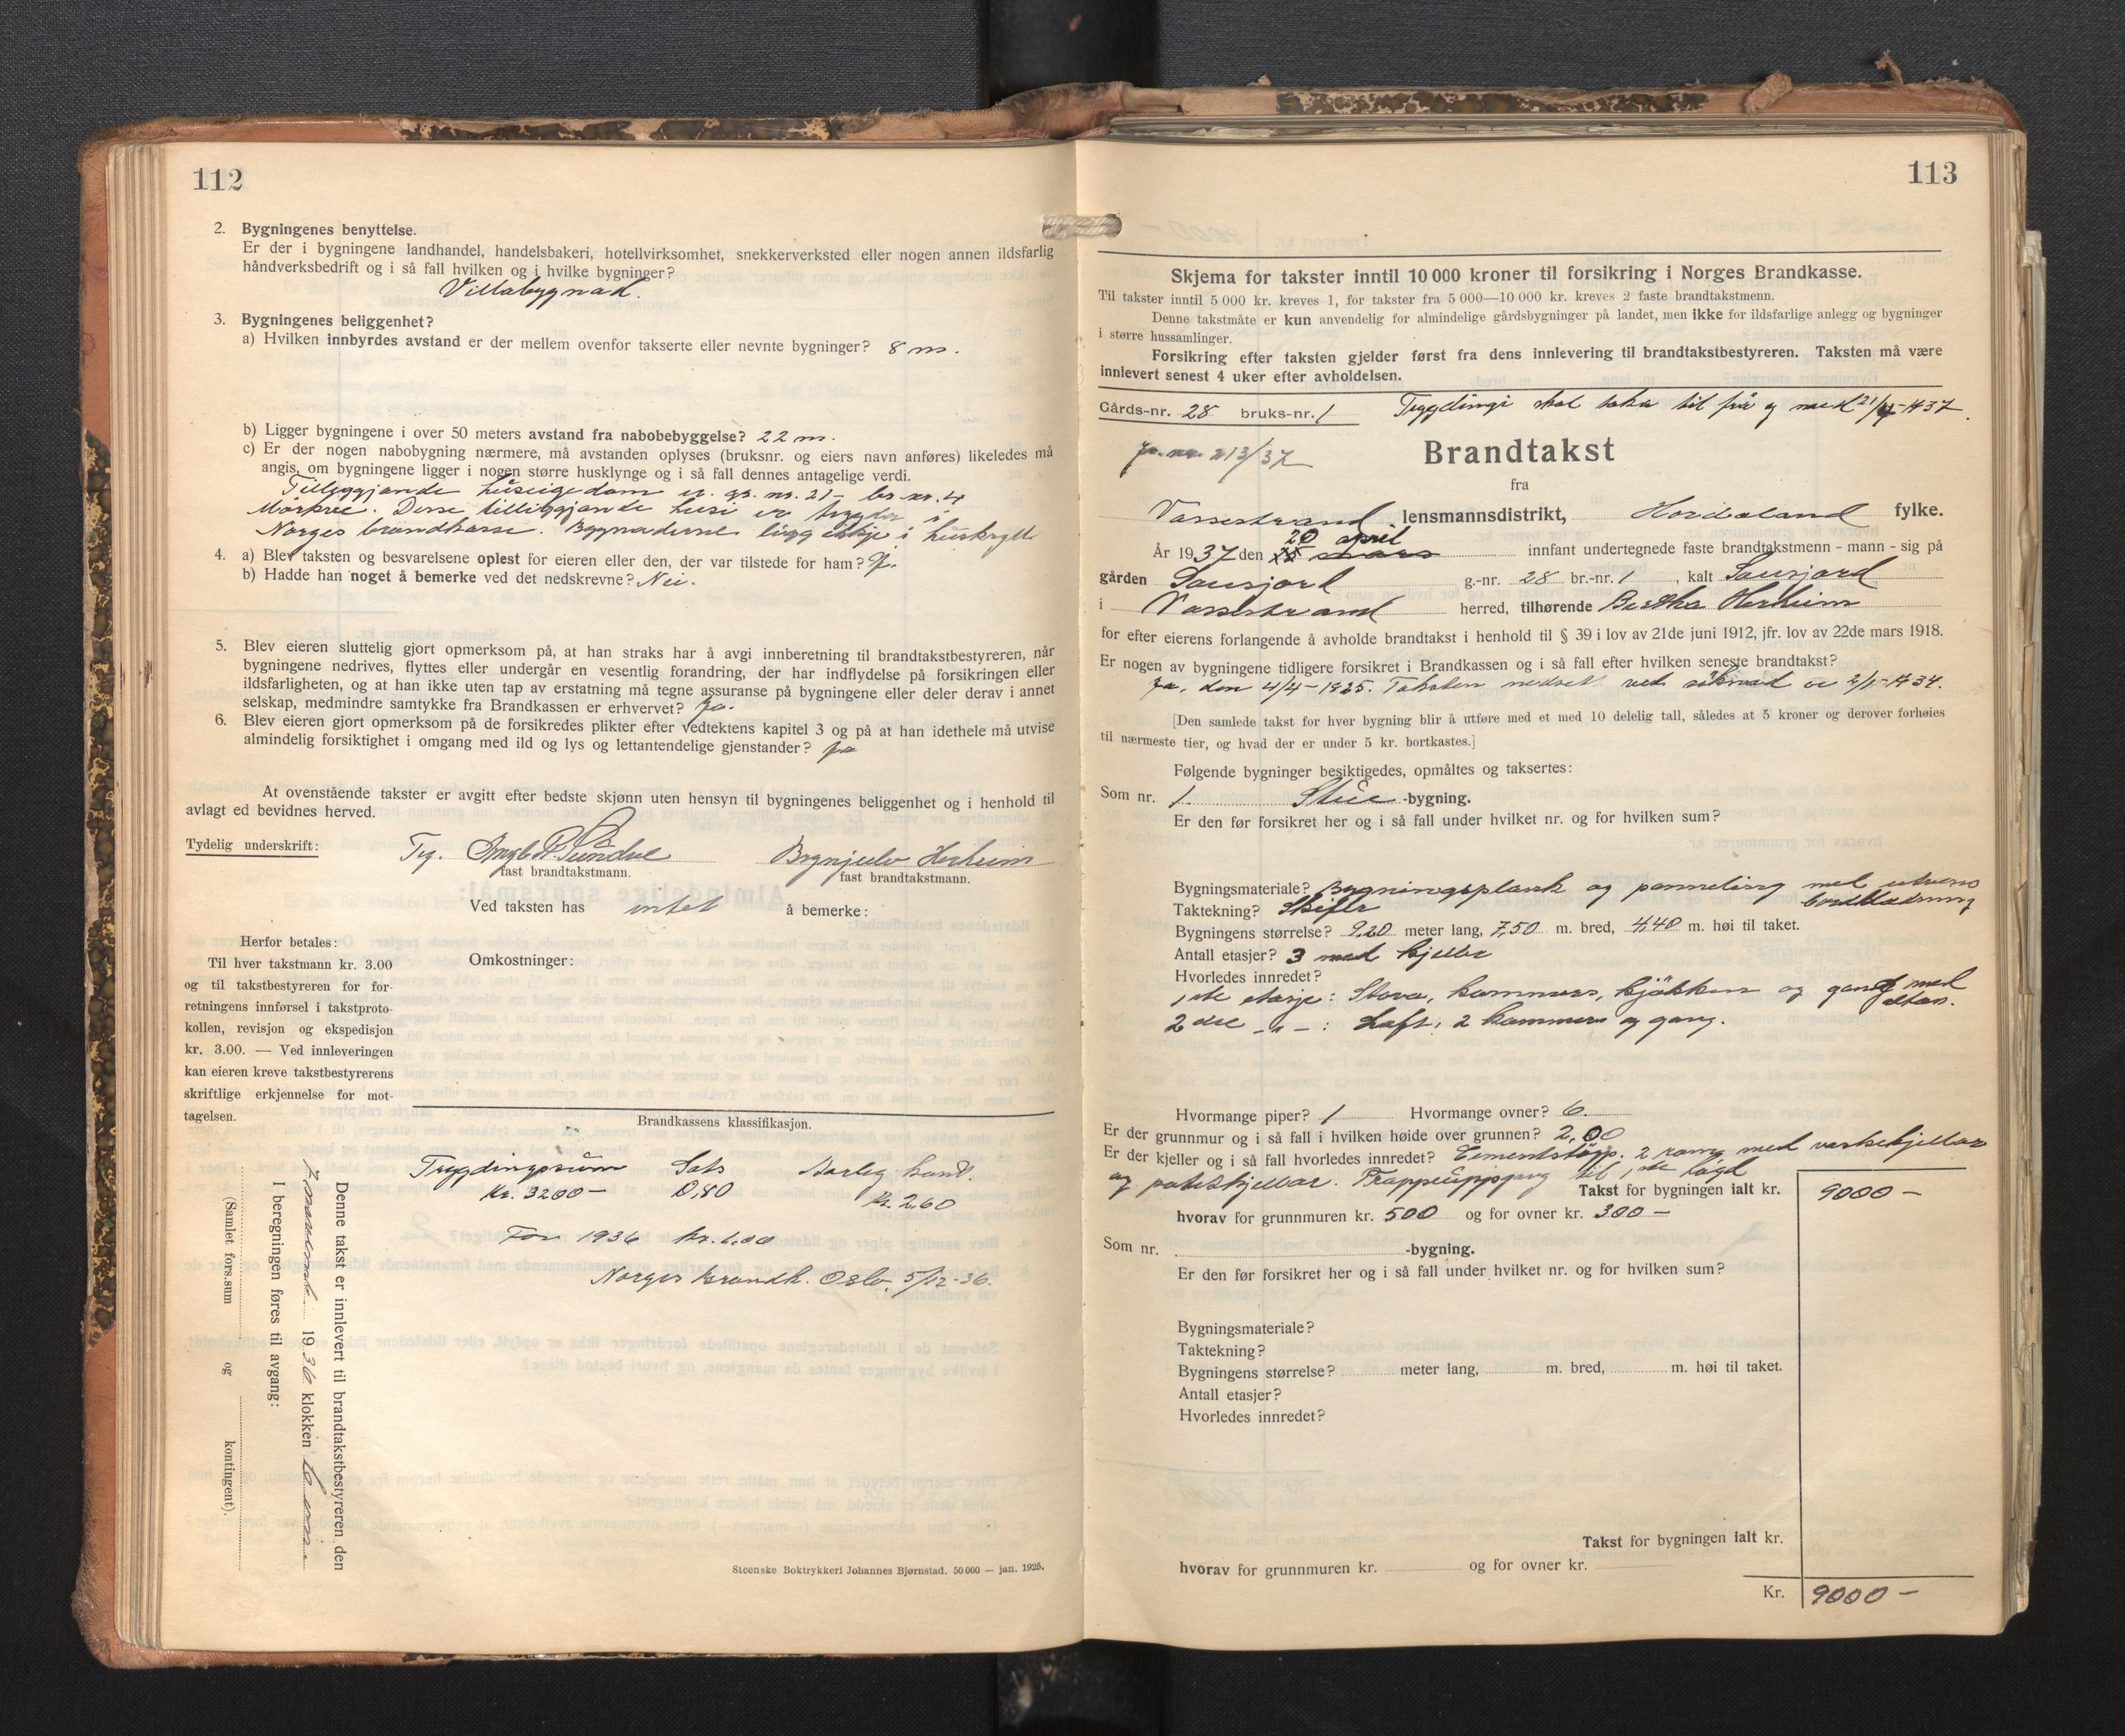 112
2. Bygningenes benyttelse.
Er der i bygningene landhandel, handelsbakeri, hotellvirksomhet, snekkerverksted eller nogen annen ildsfarlig
håndverksbedrift og i så fall hvilken og i hvilke bygninger?
Villabygnad.
3. Bygningenes beliggenhet?
a) Hvilken innbyrdes avstand er der mellem ovenfor takserte eller nevnte bygninger? 8 m.
b) Ligger bygningene i over 50 meters avstand fra nabobebyggelse? 22 m.
c) Er der nogen nabobygning nærmere, må avstanden oplyses (bruksnr. og eiers navn anføres) likeledes må
angis, om bygningene ligger i nogen større husklynge og i så fall dennes antagelige verdi.
Tilliggjande huseigedom er gr. nr. 21 - br. nr. 4
Mörkve. Desse tilliggjande husi er trygda i
Norges brandkasse. Bygnaderne ligg ikkje i
4. a) Blev taksten og besvarelsene oplest for eieren eller den, der var tilstede for ham? Ja.
b) Hadde han noget å bemerke ved det nedskrevne? Nei.
5. Blev eieren sluttelig gjort opmerksom på, at han straks har å avgi innberetning til brandtakstbestyreren, når
bygningene nedrives, flyttes eller undergår en vesentlig forandring, der har indflydelse på forsikringen eller
ildsfarligheten, og at han ikke uten tap av erstatning må tegne assuranse på bygningene eller deler derav i annet
selskap, medmindre samtykke fra Brandkassen er erhvervet? Ja.
6. Blev eieren gjort opmerksom på de forsikredes plikter efter vedtektens kapitel 3 og på at han idethele må utvise
almindelig forsiktighet i omgang med ild og lys og lettantendelige gjenstander? Ja
At ovenstående takster er avgitt efter bedste skjønn uten hensyn til bygningenes beliggenhet og i henhold til
avlagt ed bevidnes herved.
Tydelig underskrift: Brynjulv Herheim
fast brandtakstmann. fast brandtakstmann.
Ved taksten has intet å bemerke:
Herfor betales:
Til hver takstmann kr. 3.00
og til takstbestyreren for for-
retningens innførsel i takstproto-
kollen, revisjon og ekspedisjon
kr. 3.00. — Ved innleveringen
kan eieren kreve takstbestyrerens
skriftlige erkjennelse for mot-
tagelsen.
Omkostninger:
Brandkassens klassifikasjon.
Trygdingssum Sats Aarleg kont.
Kr. 3200 - 0,80 Kr. 2,60
For 1936 kr. 1,00
Norges Brandk. Oslo 5/12-36.
Denne takst er innlevert til brandtakstbestyreren den
1936 klokken
I beregningen føres til avgang:
(Samlet fors.sum og kontingent).
Steenske Boktrykkeri Johannes Bjørnstad. 50 000 — jan. 1925.
113
Skjema for takster inntil 10 000 kroner til forsikring i Norges Brandkasse.
Til takster inntil 5 000 kr. kreves 1, for takster fra 5 000—10 000 kr. kreves 2 faste brandtakstmenn.
Denne takstmåte er kun anvendelig for almindelige gårdsbygninger på landet, men ikke for ildsfarlige anlegg og bygninger
i større hussamlinger.
Forsikring efter taksten gjelder først fra dens innlevering til brandtakstbestyreren. Taksten må være
innlevert senest 4 uker efter avholdelsen.
Gårds-nr. 28 bruks-nr. 1 Trygdingi skal taka til frå og med 21/4-1937.
Jr. nr. 213/37
Brandtakst
fra
Vossestrand lensmannsdistrikt, Hordaland fylke.
20 april
År 1937 den mars innfant undertegnede faste brandtakstmenn - mann - sig på
gården Sausjord g.-nr. 28 br.-nr. 1, kalt Sausjord
i Vossestrand herred, tilhørende Bertha Herheim
for efter eierens forlangende å avholde brandtakst i henhold til § 39 i lov av 21de juni 1912, jfr. lov av 22de mars 1918.
Er nogen av bygningene tidligere forsikret i Brandkassen og i så fall efter hvilken seneste brandtakst?
Ja, den 4/4-1925. Taksten nedset ved söknad av 2/1-1934.
[Den samlede takst for hver bygning blir å utføre med et med 10 delelig tall, således at 5 kroner og derover forhøies
til nærmeste tier, og hvad der er under 5 kr. bortkastes.]
Følgende bygninger besiktigedes, opmåltes og taksertes:
Som nr. 1. Stue-bygning.
Er den før forsikret her og i så fall under hvilket nr. og for hvilken sum?
Bygningsmateriale? Bygningsplank og panneling med utvens
bordklædning
Taktekning? Skifer
Bygningens størrelse? 9,20 meter lang, 7,50 m. bred, 4,40 m. høi til taket.
Antall etasjer? 3 med kjeller
Hvorledes innredet?
1ste etasje: Stova, kammers, kjökken og gang med
altan.
2dre -"-: Loft, 2 kammers og gang.
Hvormange piper? 1 Hvormange ovner? 6.
Er der grunnmur og i så fall i hvilken høide over grunnen? 2,00
Er der kjeller og i så fall hvorledes innredet? Cementstöyp. 2 rom med vaskekjellar
og potetkjellar. Trappeuppgang til 1ste högd
Takst for bygningen ialt kr. 9000 -
hvorav for grunnmuren kr. 500 og for ovner kr. 300 -
Som nr. -bygning.
Er den før forsikret her og i så fall under hvilket nr. og for hvilken sum?
Bygningsmateriale?
Taktekning?
Bygningens størrelse? meter lang, m. bred, m. høi til taket.
Antall etasjer?
Hvorledes innredet?
Takst for bygningen ialt kr.
hvorav for grunnmuren kr. og for ovner kr.
Kr. 9000 -